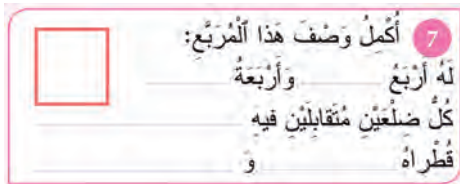 7 أُكْمِلُ وَصْفَ هَذا ٱلْمُرَبَّعِ:
لَهُ أَرْبَعُ ............ وَأَرْبَعَةُ ............
كُلُّ ضِلْعَيْنِ مُتَقابِلَيْنِ فيهِ ............
قُطْراهُ ............ وَ ............